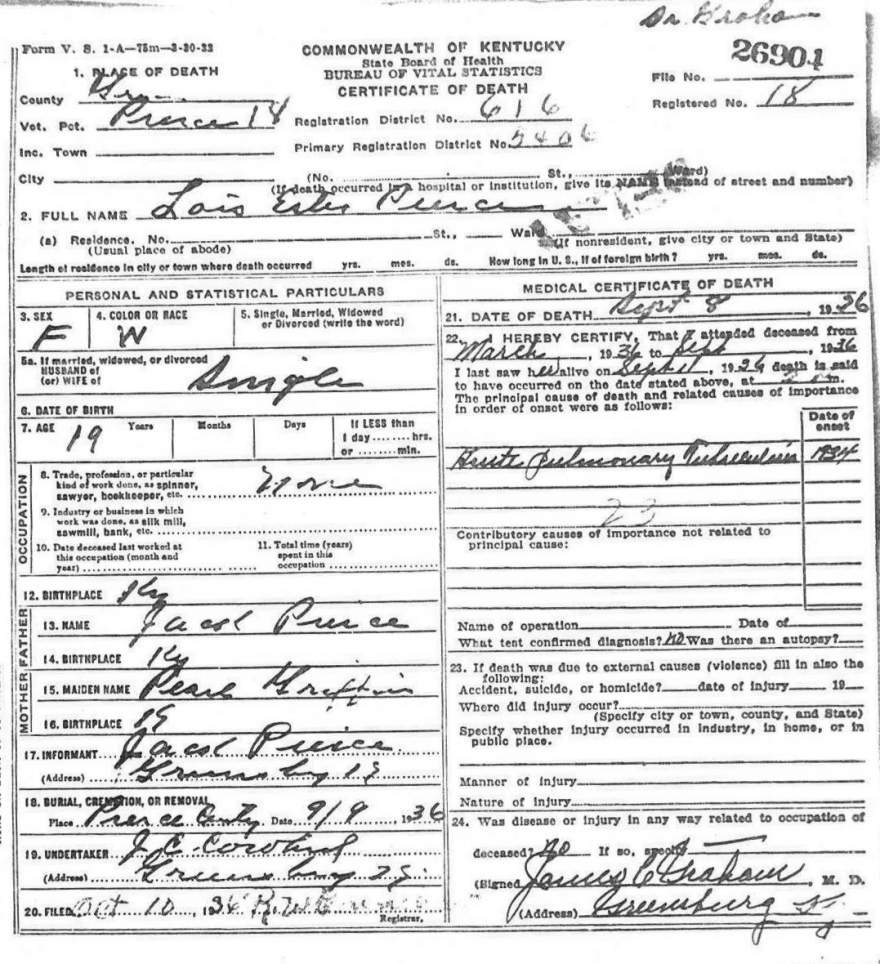 Dr. Graham
Form V. S. 1-A—75m—3-30-32
COMMONWEALTH OF KENTUCKY
State Board of Health
BUREAU OF VITAL STATISTICS
CERTIFICATE OF DEATH
26904
File No.
Registered No. 18
1. PLACE OF DEATH
County
Vot. Pct. Pierce 18
Inc. Town
City
Registration District No. 616
Primary Registration District No. 5406
(No. St., Ward)
(If death occurred in a hospital or institution, give its NAME instead of street and number)
2. FULL NAME Lois Pierce
(a) Residence. No. St., Ward
(Usual place of abode)
(If nonresident, give city or town and State)
Length of residence in city or town where death occurred yrs. mos. ds. How long in U. S., if of foreign birth? yrs. mos. ds.
PERSONAL AND STATISTICAL PARTICULARS
3. SEX F
4. COLOR OR RACE W
5. Single, Married, Widowed or Divorced (write the word)
5a. If married, widowed, or divorced
HUSBAND of
(or) WIFE of Single
6. DATE OF BIRTH
7. AGE 19 Years Months Days If LESS than
1 day ........ hrs.
or ........ min.
OCCUPATION
8. Trade, profession, or particular
kind of work done, as spinner,
sawyer, bookkeeper, etc. None
9. Industry or business in which
work was done, as silk mill,
sawmill, bank, etc.
10. Date deceased last worked at
this occupation (month and
year)
11. Total time (years)
spent in this
occupation
12. BIRTHPLACE Ky
FATHER
13. NAME Jacob Pierce
14. BIRTHPLACE Ky
MOTHER
15. MAIDEN NAME Pearl Griffin
16. BIRTHPLACE Ky
17. INFORMANT Jacob Pierce
(Address) Greensburg Ky
18. BURIAL, CREMATION, OR REMOVAL
Place Pierce Date 9/9 1936
19. UNDERTAKER J. C. Cowherd
(Address) Greensburg Ky
20. FILED Oct 10, 1936
Registrar.
MEDICAL CERTIFICATE OF DEATH
21. DATE OF DEATH Sept 8, 1936
22. I HEREBY CERTIFY, That I attended deceased from
March, 1936 to Sept, 1936
I last saw her alive on Sept, 1936 death is said
to have occurred on the date stated above, at m.
The principal cause of death and related causes of importance
in order of onset were as follows:
Date of onset
Acute Pulmonary Tuberculosis 1934
23
Contributory causes of importance not related to
principal cause:
Name of operation Date of
What test confirmed diagnosis? No Was there an autopsy?
23. If death was due to external causes (violence) fill in also the
following:
Accident, suicide, or homicide? date of injury 19
Where did injury occur?
(Specify city or town, county, and State)
Specify whether injury occurred in industry, in home, or in
public place.
Manner of injury
Nature of injury
24. Was disease or injury in any way related to occupation of
deceased? No If so, specify
(Signed) James C Graham, M. D.
(Address) Greensburg Ky